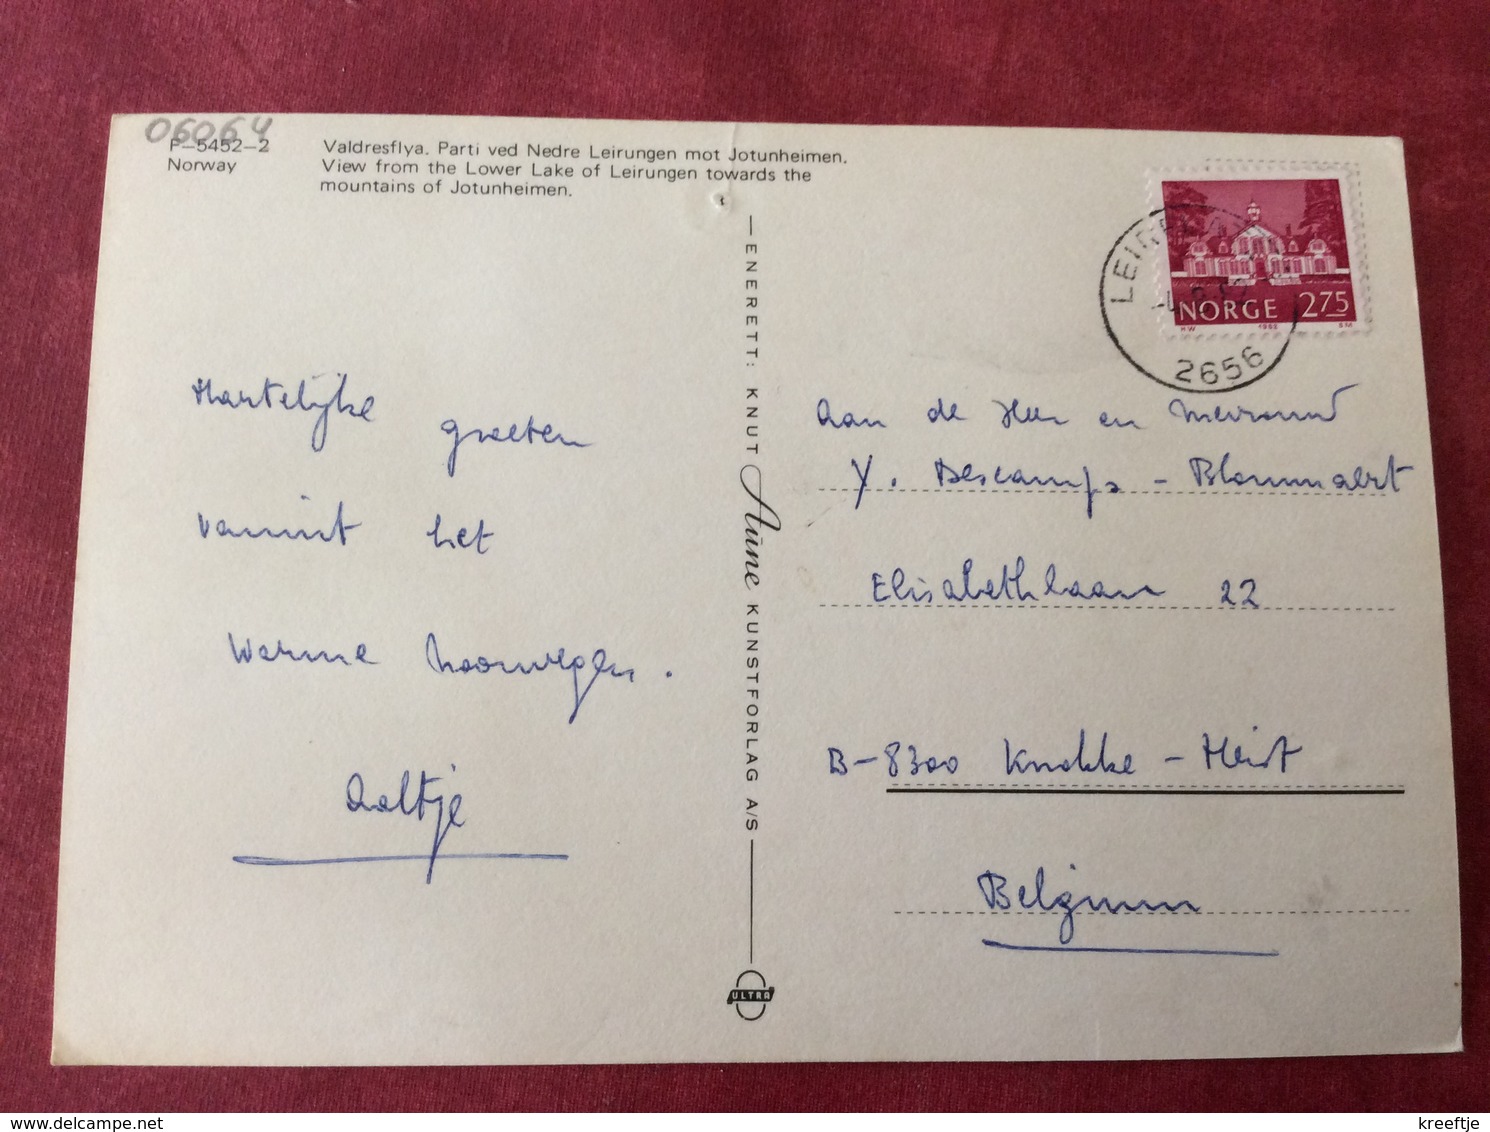 06064
P-5452-2
Norway
Valdresflya. Parti ved Nedre Leirungen mot Jotunheimen.
View from the Lower Lake of Leirungen towards the
mountains of Jotunheimen.
Hartelijke groeten
vanuit het
warme Noorwegen.
Aaltje
ENERETT: KNUT Aune KUNSTFORLAG A/S
ULTRA
2656
NORGE 275
aan de Heer en Mevrouw
Y. Descamps - Blommaert
Elisabethlaan 22
B-8300 Knokke - Heist
Belgium
kreeftje